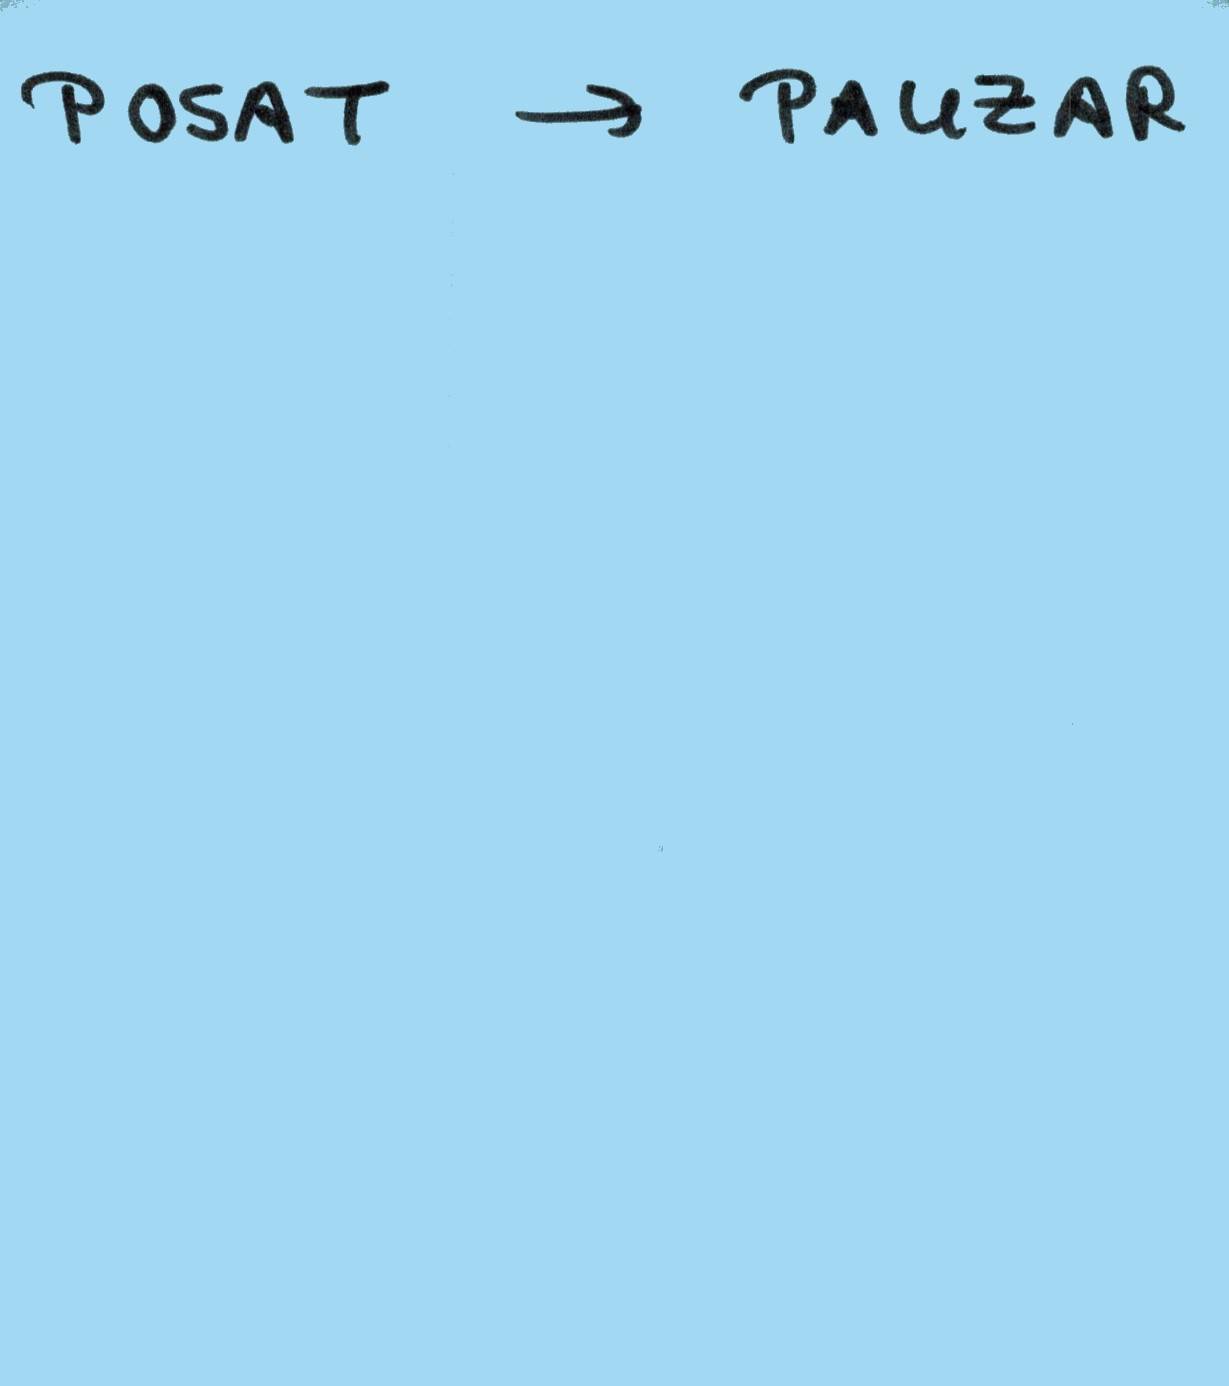 POSAT → PAUZAR